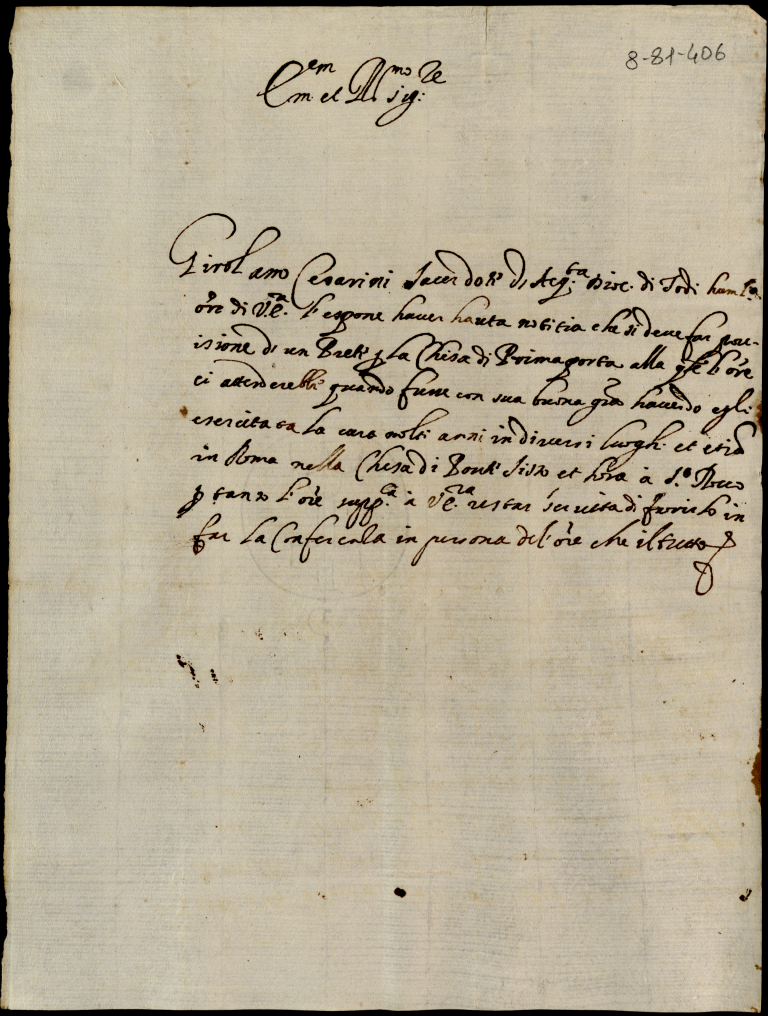 8-81-406
Em.em et Rmo Sig.re
Girolamo Cesarini Sacerdote di Acq.ta Dioc. di Todi hum.e
ore di V.E. l'espone haver hauta notitia che si deve far prov-
isione di un Prete p la Chiesa di Primaporta alla qle l'ore
ci attenderebbe quando fusse con sua buona gra havendo egli
esercitata la cura molti anni in diversi luoghi et etia
in Roma nella Chiesa di Ponte Sisto et hora à S.to Rocco
p tanto l'ore supp.ca à V.E.za restar servita di favorirlo in
far la Conferenla in persona del ore che il tutto